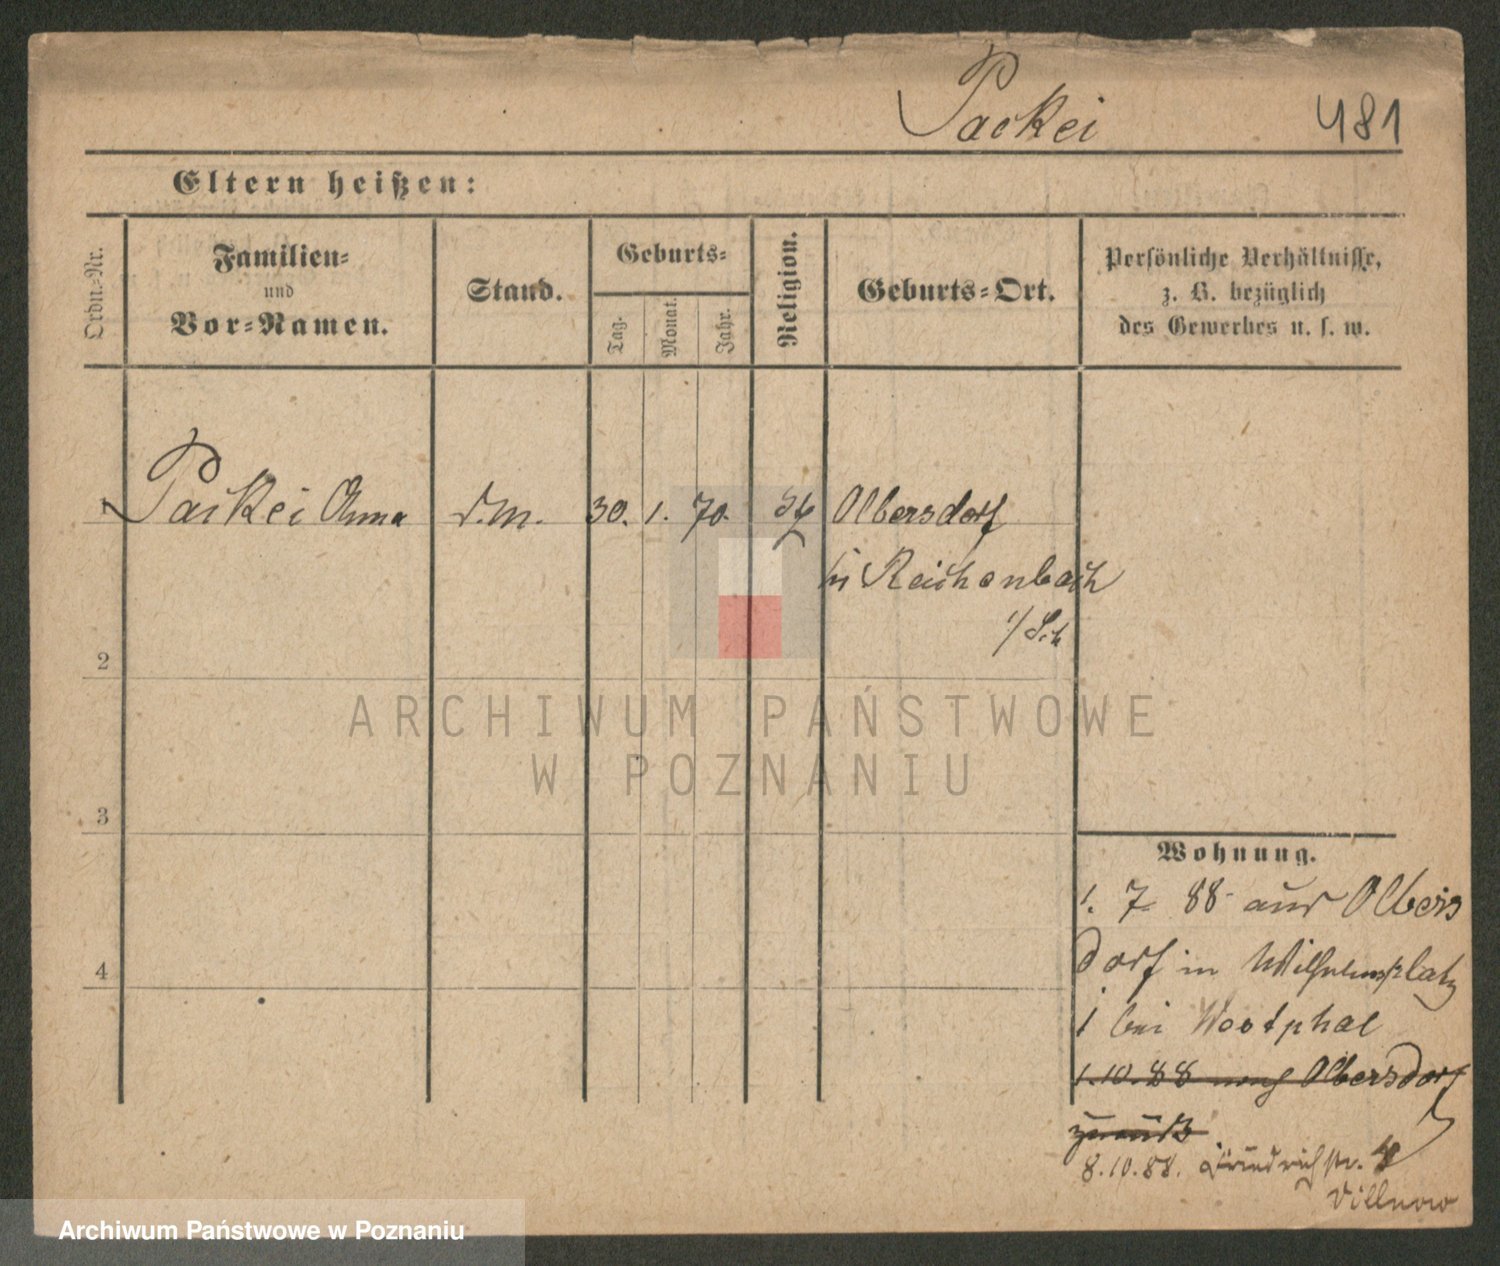 Packei 481
Eltern heißen:
Ordn.-Nr.
Familien-
und
Vor-Namen.
Stand.
Geburts-
Tag.
Monat.
Jahr.
Religion.
Geburts-Ort.
Persönliche Verhältnisse,
z. B. bezüglich
des Gewerbes u. s. w.
1 Packei Anna d.m. 30. 1. 70. Olbersdorf
bei Reichenbach
i/Sch
2
3
4
Wohnung.
1. 7 88 aus Olbers
dorf in Wilhelmsplatz
1 bei Westphal
1.10.88 nach Olbersdorf
zurück
8.10.88. Friedrichstr.
Villnow
ARCHIWUM PAŃSTWOWE
W POZNANIU
Archiwum Państwowe w Poznaniu